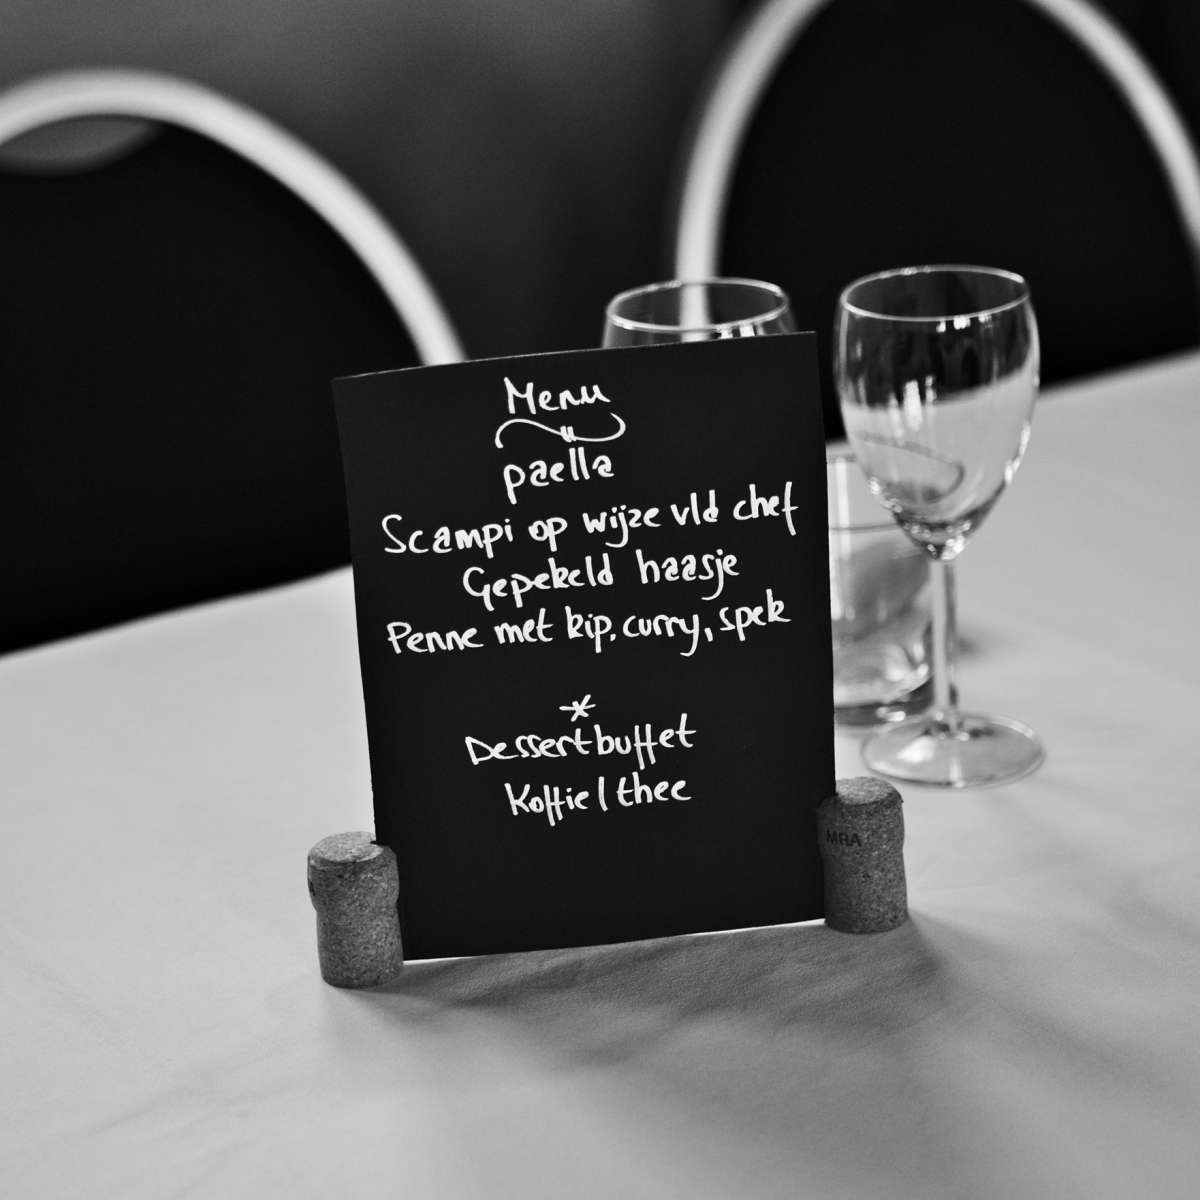 Menu
paella
Scampi op wijze vld chef
Gepekeld haasje
Penne met kip, curry, spek
*
Dessertbuffet
Koffie / thee
MRA